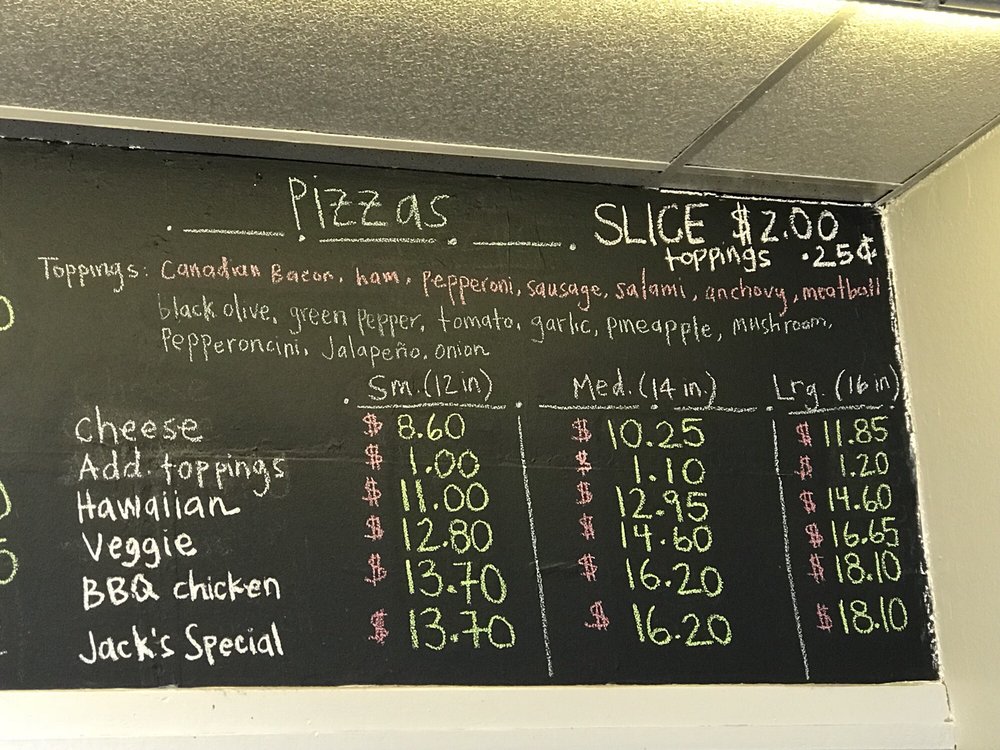 Pizzas
SLICE $2.00
toppings .25¢
Toppings: Canadian Bacon, ham, Pepperoni, sausage, salami, anchovy, meatball
black olive, green pepper, tomato, garlic, pineapple, mushroom,
Pepperoncini, Jalapeño, onion
Sm. (12 in) Med. (14 in) Lrg. (16 in)
cheese $ 8.60 $ 10.25 $ 11.85
Add. toppings $ 1.00 $ 1.10 $ 1.20
Hawaiian $ 11.00 $ 12.95 $ 14.60
Veggie $ 12.80 $ 14.60 $ 16.65
BBQ chicken $ 13.70 $ 16.20 $ 18.10
Jack's Special $ 13.70 $ 16.20 $ 18.10